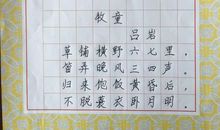 牧童
吕岩
草铺横野六七里，
笛弄晚风三四声。
归来饱饭黄昏后，
不脱蓑衣卧月明。